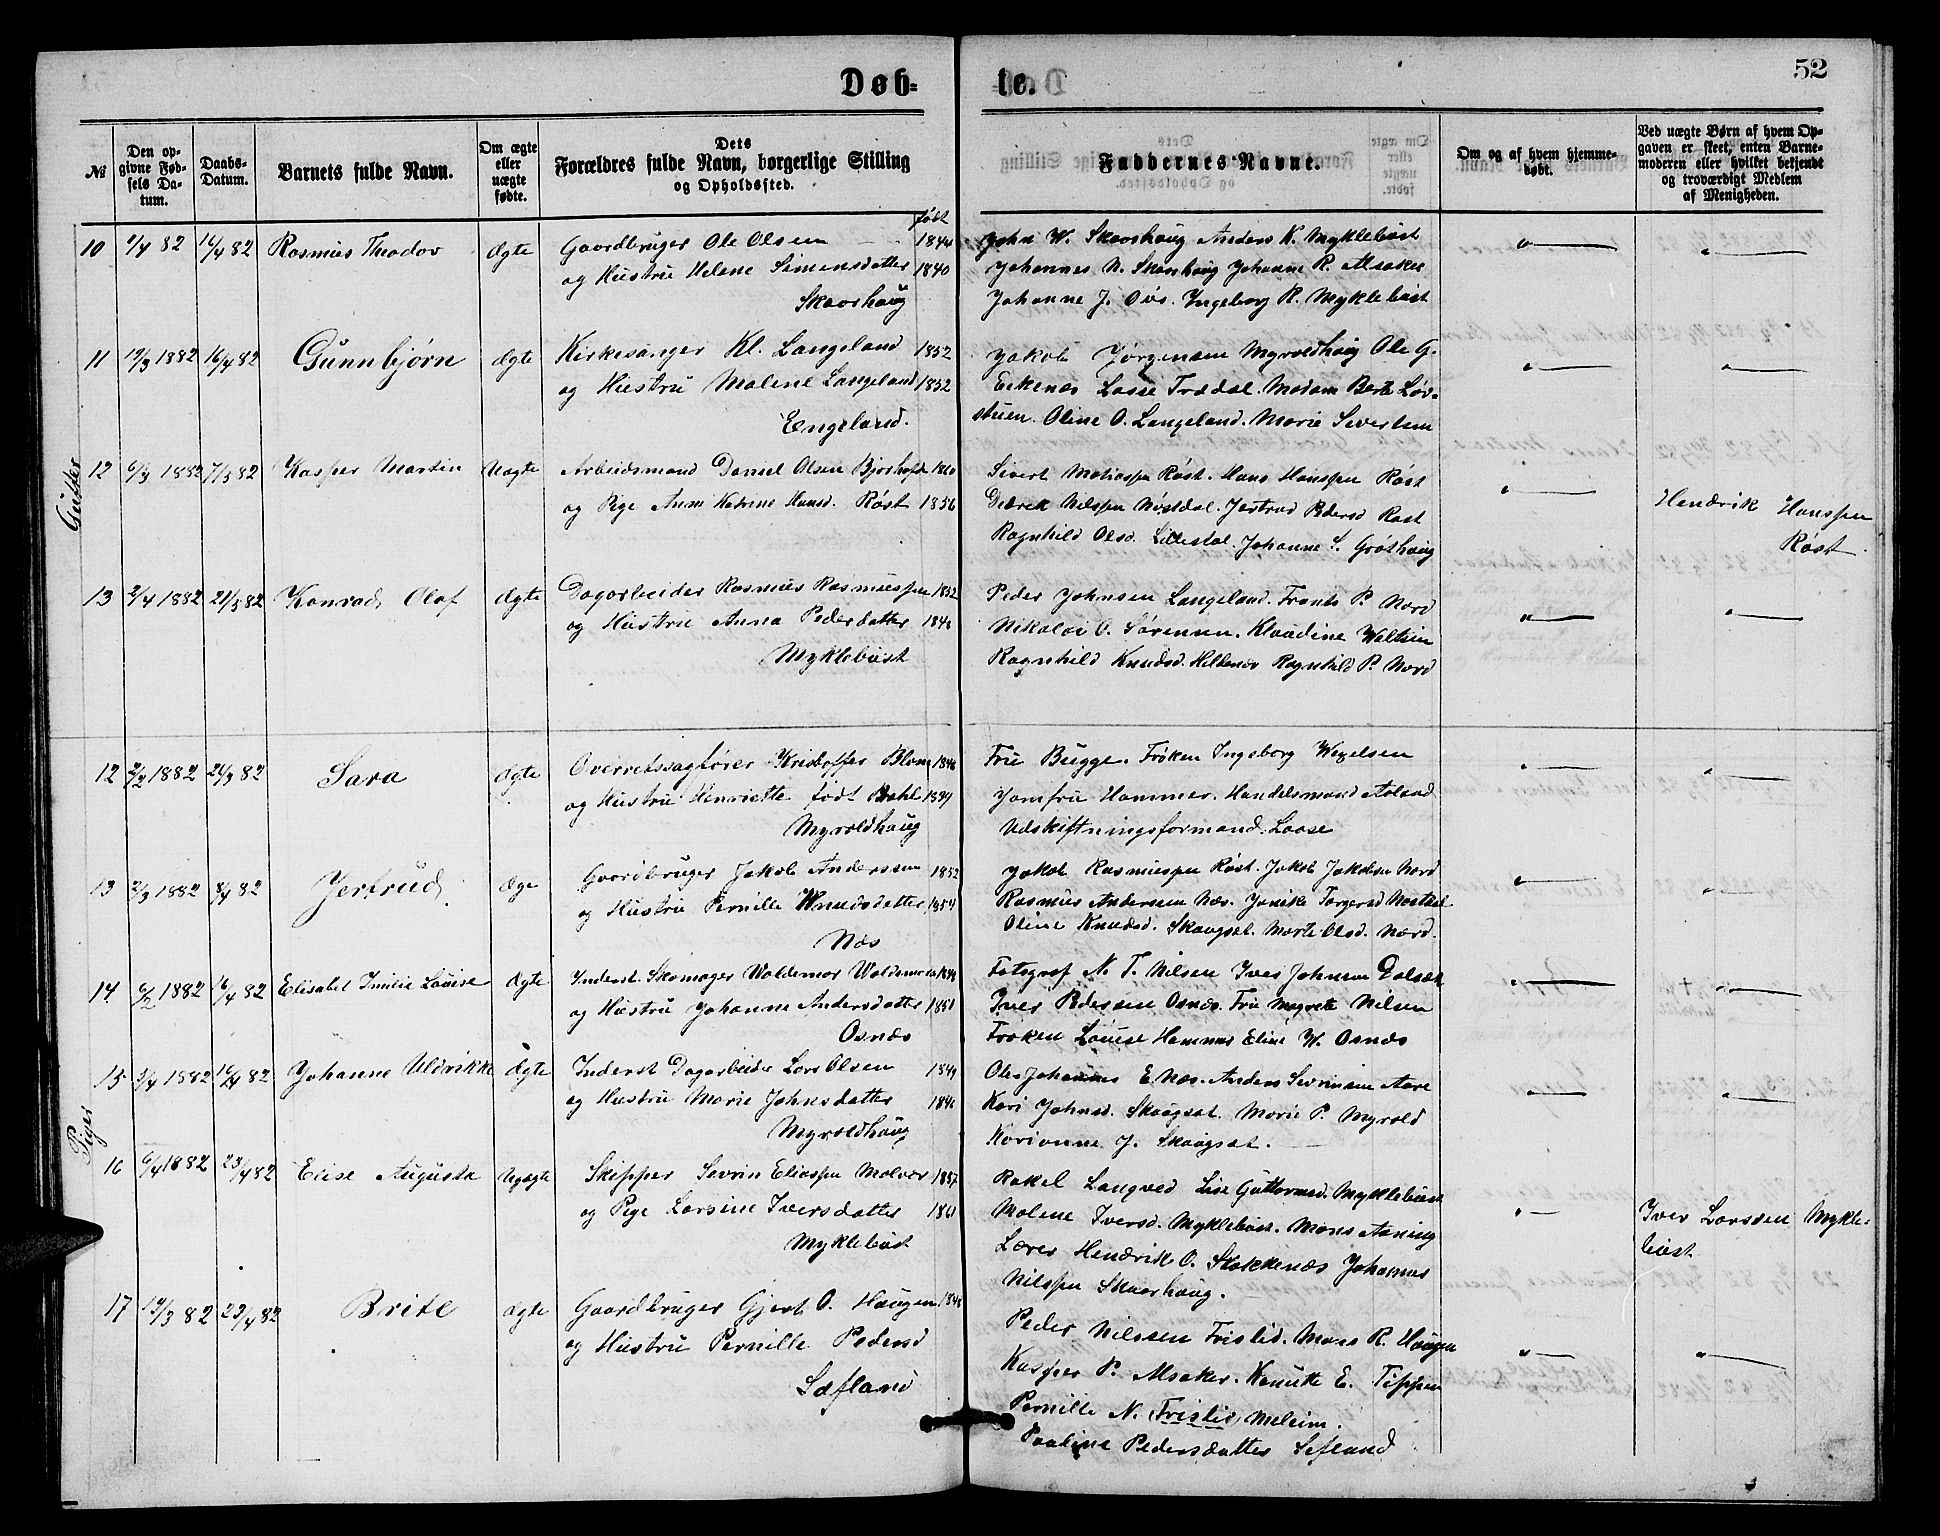 Døb=
te.
52
№
Den op-
givne Fød-
sels Da-
tum.
Daabs-
Datum.
Barnets fulde Navn.
Om ægte
eller
uægte
fødte.
Dets
Forældres fulde Navn, borgerlige Stilling
og Opholdssted.
Faddernes Navne.
Om og af hvem hjemme-
døbt.
Ved uægte Børn af hvem Op-
gaven er skeet, enten Barne-
moderen eller hvilket betjendt
og troværdigt Medlem
af Menigheden.
født
Gutter
10 /4 82 16/4 82 Rasmus Theodor Ægte Gaardbruger Ole Olsen 1844
og Hustru Helene Simensdatter 1840
Skaarhaug
John W. Skaarhaug Anders K. Myklebust
Johannes N. Skaarhaug Johanne R. Alsaker
Johanne J. Øvs. Ingeborg R. Myklebust
11 19/3 1882 16/4 82 Gunnbjørn Ægte Kirkesanger Kl. Langeland 1852
og Hustru Malene Langeland 1852
Engeland.
Jakob Jørgensen Myrvoldhaug Ole G.
Eikenes Lasse Trædal. Madam Berte Løv-
stuen. Oline O. Langeland. Marie Severtsen
12 6/3 1882 7/5 82 Kasper Martin Uægte Arbeidsmand Daniel Olsen 1860
og Pige Anne Katrine Hansd. Røst 1856
Sivert Matiassen Røst. Hans Hanssen Røst
Didrik Nilssen Nøstdal. Jertrud Pedersd Røst
Ragnhild Olsd. Lillestøl. Johanne S. Grøthaug
Hendrik Hanssen
Røst.
13 2/4 1882 21/5 82 Konrad Olaf Ægte Dagarbeider Rasmus Rasmussen 1852
og Hustru Anna Pedersdatter 184
Myklebust
Peder Johnsen Langeland. Frants P. Nord
Nikolai O. Sørensen. Klaudine
Ragnhild Knudsd. Hellenes Ragnhild P. Nord
Piger
12 2/2 1882 26/3 82 Sara Ægte Overretssagfører Kristoffer Blom 1846
og Hustru Henriette født Dahl 1839
Myrvoldhaug
Fru Bugge. Frøken Ingeborg Wexelsen
Jomfru Hammer. Handelsmand Aaland
Udskiftningsformand Laase
13 2/3 1882 /4 82 Jertrud Æge Gaardbruger Jakob Anderssen 1852
og Hustru Pernille Knudsdatter 1854
Næs
Jakob Rasmussen Røst. Jakob Jakobsen Nord
Rasmus Andersen Næs. Jonike Torgersd Nøstdal
Oline Knudsd. Skaugsæt. Marte Olsd. Nord.
14 6/2 1882 16/4 82 Elisabet Louise Ægte Inderst Skomager Waldemar
og Hustru Johanne Andersdatter 1851
Osnæs
Fotograf N. T. Nilsen Iver Johnsen
Iver Pedersen Osnæs. Fru Magrete Nilsen
Frøken Louise Hammer Eline W. Osnæs
15 /4 1882 16/4 82 Johanne Uldrikke Ægte Inderst Dagarbeider Lars Olsen 1849
og Hustru Marie Johnsdatter 184
Myrvoldhaug
Ole Johannes E. Næs. Anders Sevrinsen Aare
Kari Johnsd. Skaugsæt. Marie P. Myrvold
Karianne J. Skaugsæt.
16 6/4 1882 23/4 82 Elise Augusta Uægte Skipper Sevrin Eliassen Molvær 1857
og Pige Larsine Iversdatter 1861
Myklebust
Rakel Langved Lise Guttormsd. Myklebust
Malene Iversd. Myklebust. Mons Aaning
Lærer Hendrik O. Stokkenæs Johannes
Nilssen Skaarhaug.
Iver Larssen Mykle-
bust
17 19/3 82 23/4 82 Brite Ægte Gaardbruger Gjert O. Haugen 1848
og Hustru Pernille Pedersd
Sæfland
Peder Nilssen Fristid. Mons R. Haugen
Kasper P. Alsaker. Kanutte E. Tippen
Pernille N. (Fristid) Melheim.
Pauline Pedersdatter Sefland